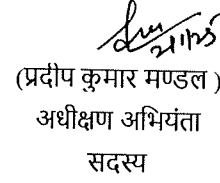 (प्रदीप कुमार मण्डल )
अधीक्षण अभियंता
सदस्य